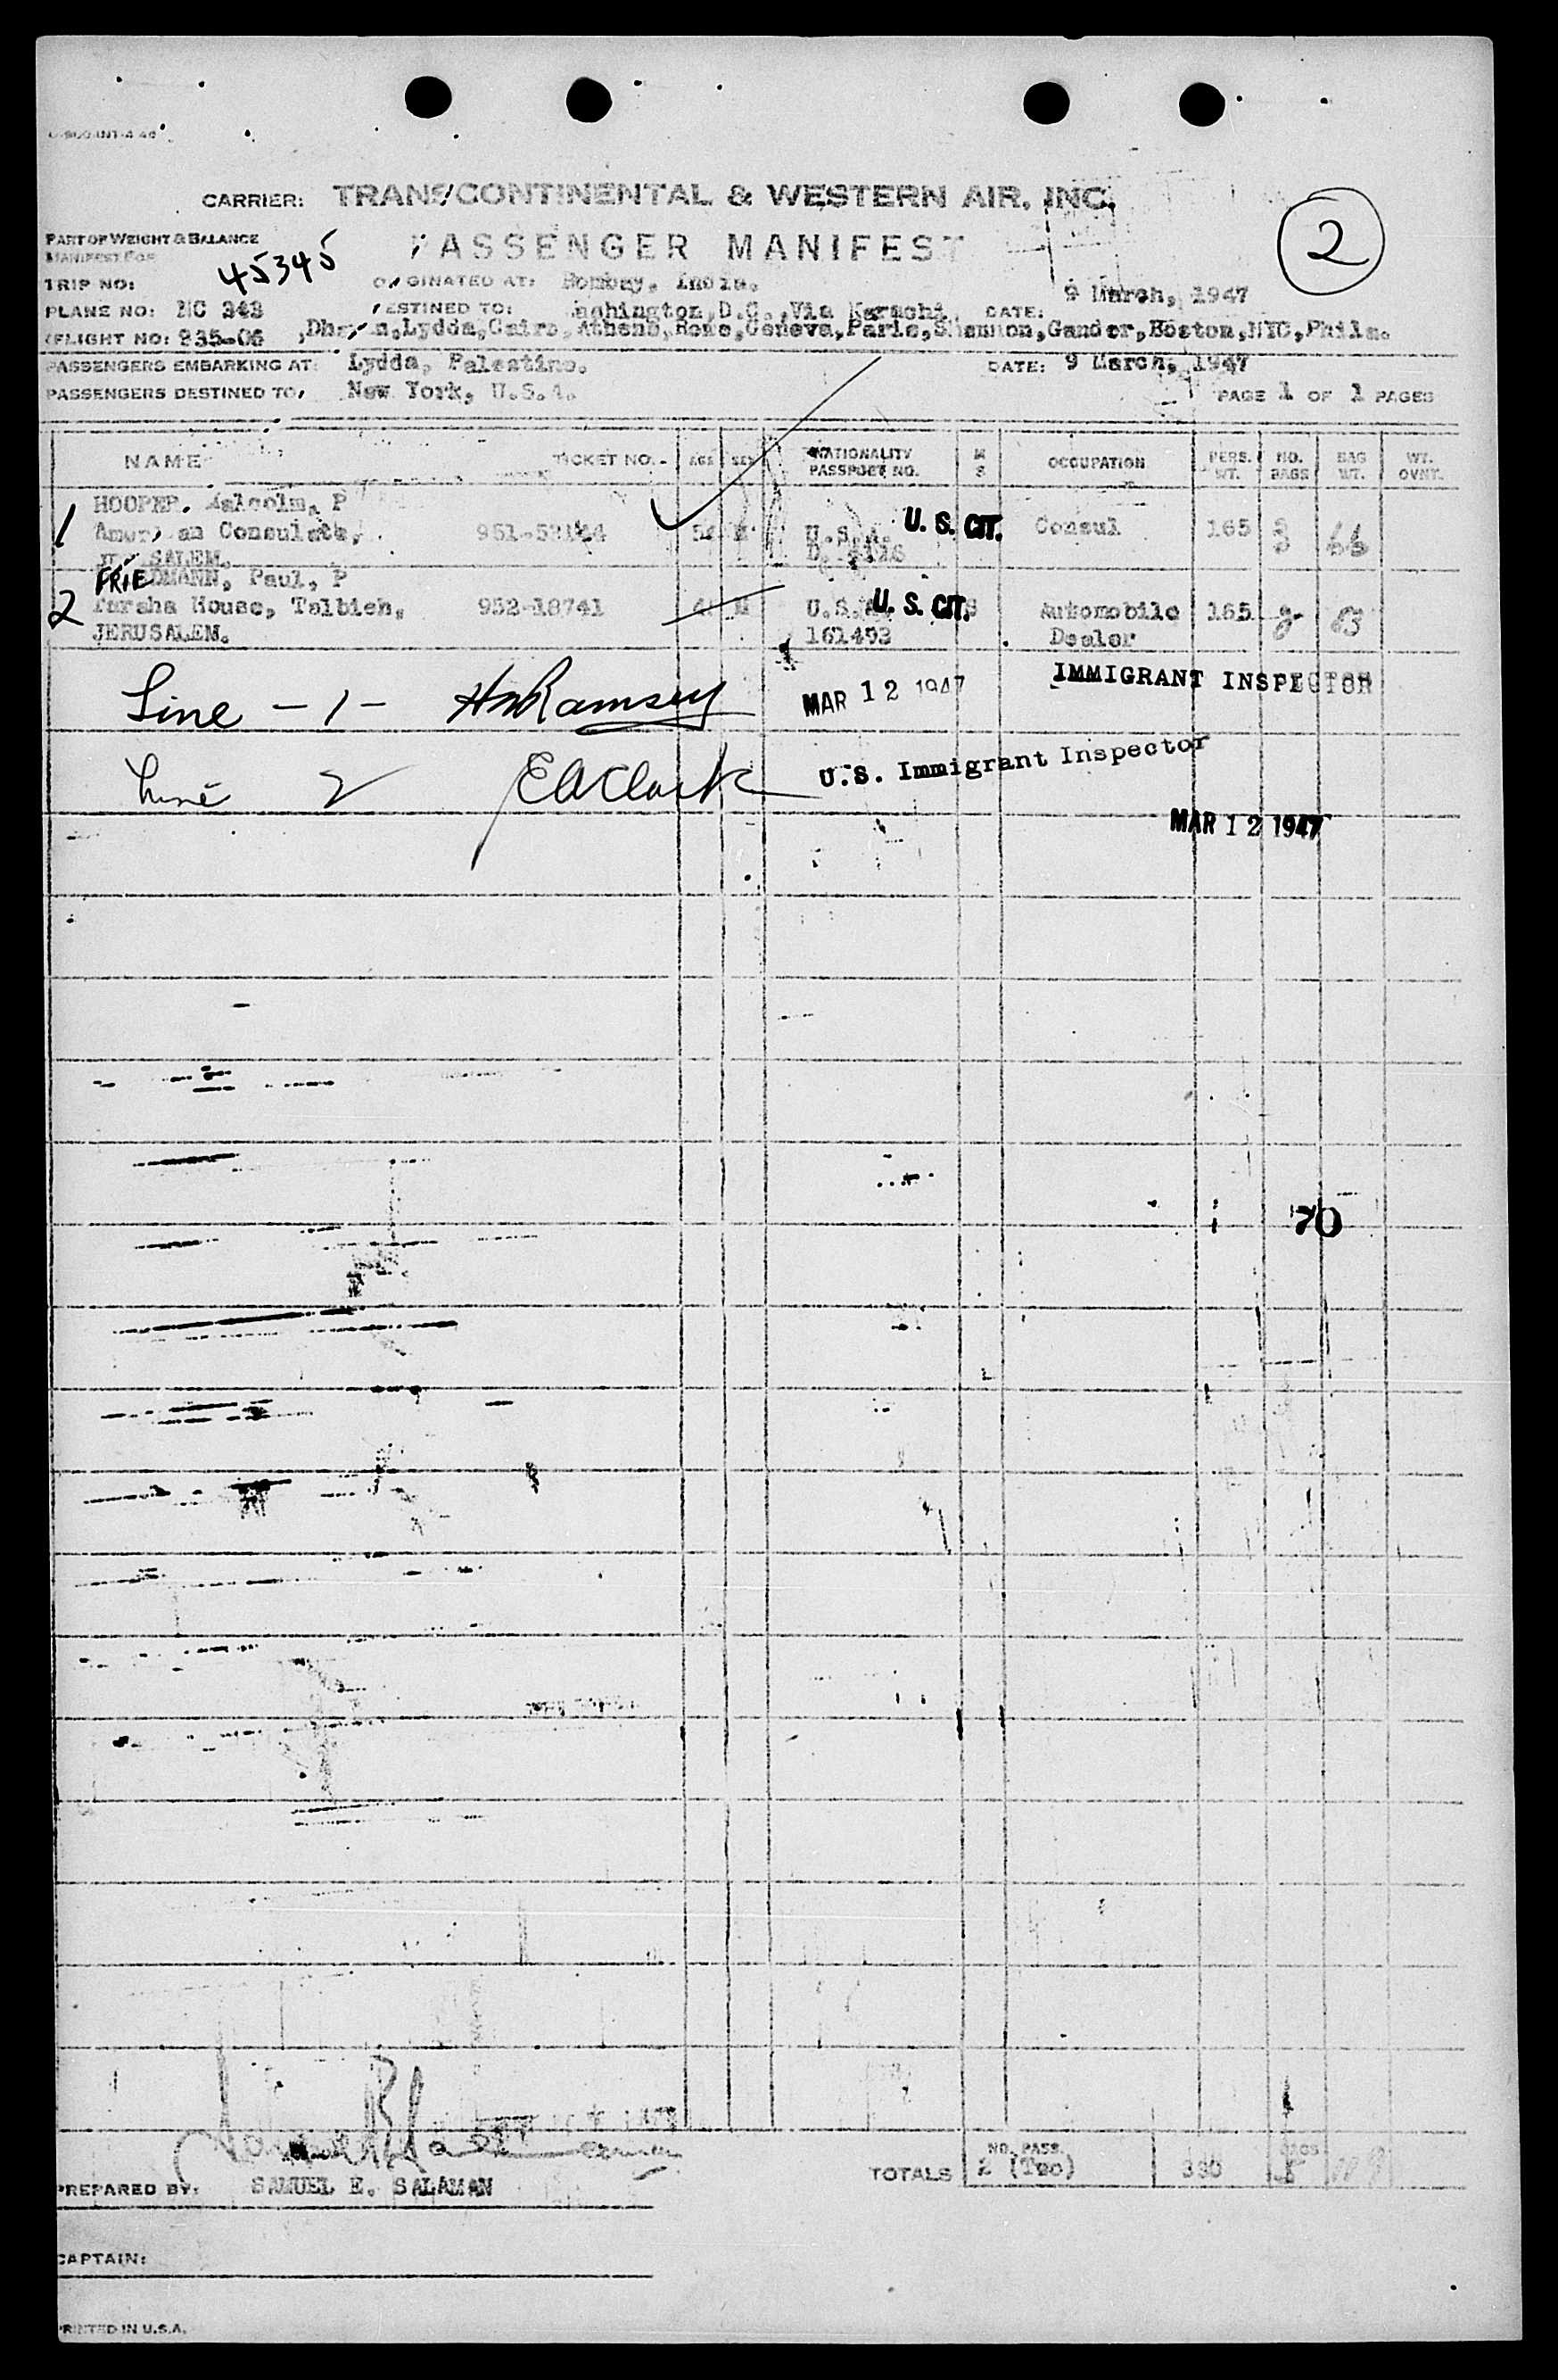 CARRIER: TRANSCONTINENTAL & WESTERN AIR, INC.
2
PART OF WEIGHT & BALANCE
MANIFEST FOR
PASSENGER MANIFEST
45345
TRIP NO: ORIGINATED AT: Bombay, India.
PLANE NO: NC 343 DESTINED TO: Washington, D.C., Via Karachi DATE: 9 March, 1947
FLIGHT NO: 935-06 ,Lydda,Cairo,Athens,Rome,Geneva,Paris,Shannon,Gander,Boston,NYC,Phila.
PASSENGERS EMBARKING AT: Lydda, Palestine. DATE: 9 March, 1947
PASSENGERS DESTINED TO, New York, U.S.A. PAGE 1 OF 1 PAGES
NAME TICKET NO. AGE SEX NATIONALITY PASSPORT NO. M S OCCUPATION PERS. WT. NO. BAGS BAG WT. WT. OVNT.
HOOPER. Malcolm, P
1 American Consulate, U.S.A. U. S. CIT. Consul 165 66
JERUSALEM.
FRIEDMANN, Paul, P
2 Tarsha House, Talbieh, 952-18741 M U. S. CIT. Automobile 165
JERUSALEM. 161493 Dealer
Line - 1 - Ramsey MAR 12 1947 IMMIGRANT INSPECTOR
Line 2 EAClark U.S. Immigrant Inspector
MAR 12 1947
70
NO. PASS. BAGS
TOTALS 2 (Two) 330
PREPARED BY: SAMUEL E. SALAMAN
CAPTAIN:
PRINTED IN U.S.A.